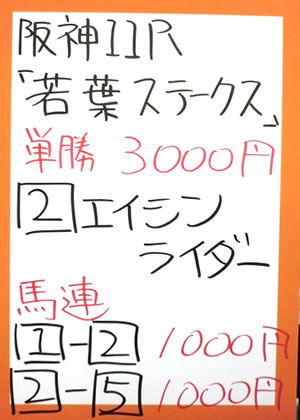 阪神11R
「若葉ステークス」
単勝 3000円
2 エイシン
ライダー
馬連
1-2 1000円
2-5 1000円